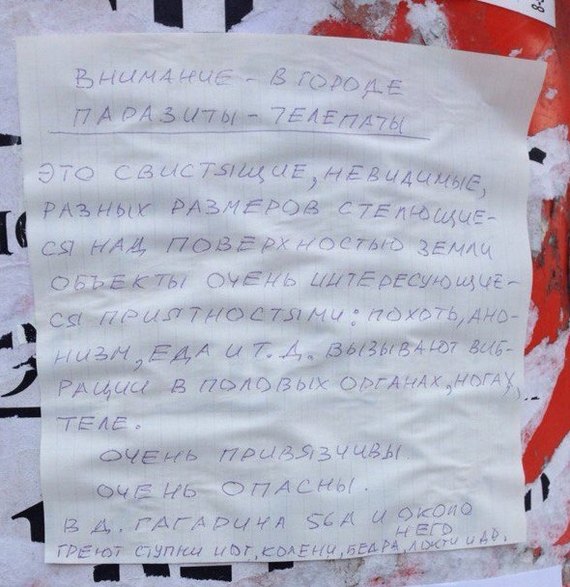 ВНИМАНИЕ - В ГОРОДЕ
ПАРАЗИТЫ - ТЕЛЕПАТЫ
ЭТО СВИСТЯЩИЕ, НЕВИДИМЫЕ,
РАЗНЫХ РАЗМЕРОВ СТЕЛЮЩИЕ-
СЯ НАД ПОВЕРХНОСТЬЮ ЗЕМЛИ
ОБЪЕКТЫ ОЧЕНЬ ИНТЕРЕСУЮЩИЕ-
СЯ ПРИЯТНОСТЯМИ: ПОХОТЬ, АНО-
НИЗМ, ЕДА И Т. Д. ВЫЗЫВАЮТ ВИБ-
РАЦИИ В ПОЛОВЫХ ОРГАНАХ, НОГАХ,
ТЕЛЕ.
ОЧЕНЬ ПРИВЯЗЧИВЫ.
ОЧЕНЬ ОПАСНЫ.
В Д. ГАГАРИНА 56А И ОКОЛО
НЕГО
ГРЕЮТ СТУПНИ НОГ, КОЛЕНИ, БЕДРА, ЛОКТИ И ДР.